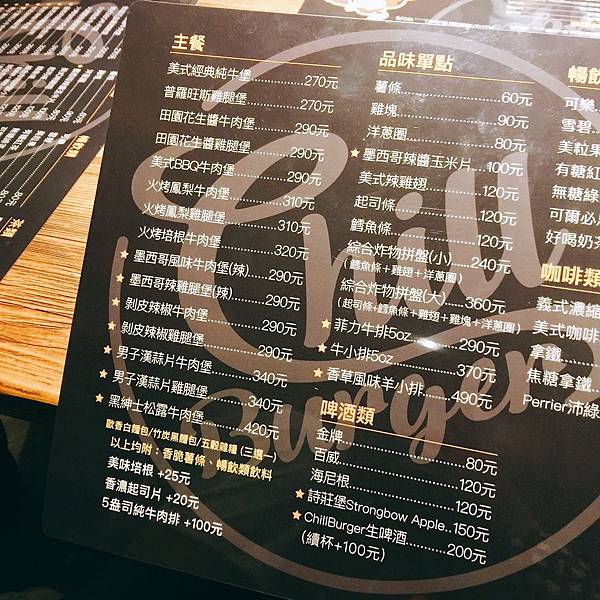 主餐
美式經典純牛堡 270元
普羅旺斯雞腿堡 270元
田園花生醬牛肉堡 290元
田園花生醬雞腿堡 290元
美式BBQ牛肉堡 290元
火烤鳳梨牛肉堡 310元
火烤鳳梨雞腿堡 310元
火烤培根牛肉堡 320元
★墨西哥風味牛肉堡(辣) 290元
★墨西哥辣雞腿堡(辣) 290元
★剝皮辣椒牛肉堡 290元
★剝皮辣椒雞腿堡 290元
★男子漢蒜片牛肉堡 340元
★男子漢蒜片雞腿堡 340元
★黑紳士松露牛肉堡 420元
歐香白麵包/竹炭黑麵包/五穀雜糧 (三選一)
以上均附：香脆薯條、暢飲類飲料
美味培根 +25元
香濃起司片 +20元
5盎司純牛肉排 +100元
品味單點
薯條 60元
雞塊 90元
洋蔥圈 80元
★墨西哥辣醬玉米片 100元
美式辣雞翅 120元
起司條 120元
鱈魚條 120元
綜合炸物拼盤(小) 240元
(鱈魚條＋雞翅＋洋蔥圈)
綜合炸物拼盤(大) 360元
(起司條+鱈魚條＋雞翅＋雞塊＋洋蔥圈)
★菲力牛排5oz 290元
★牛小排5oz 370元
★香草風味羊小排 490元
啤酒類
金牌 80元
百威 120元
海尼根 120元
★詩莊堡Strongbow Apple 150元
★ChillBurger生啤酒 200元
(續杯+100元)
暢飲
可樂
雪碧
美粒果
有糖紅
無糖綠
可爾必
好喝奶茶
咖啡類
義式濃縮
美式咖啡
拿鐵
焦糖拿鐵
Perrier沛綠
Chill
Burger